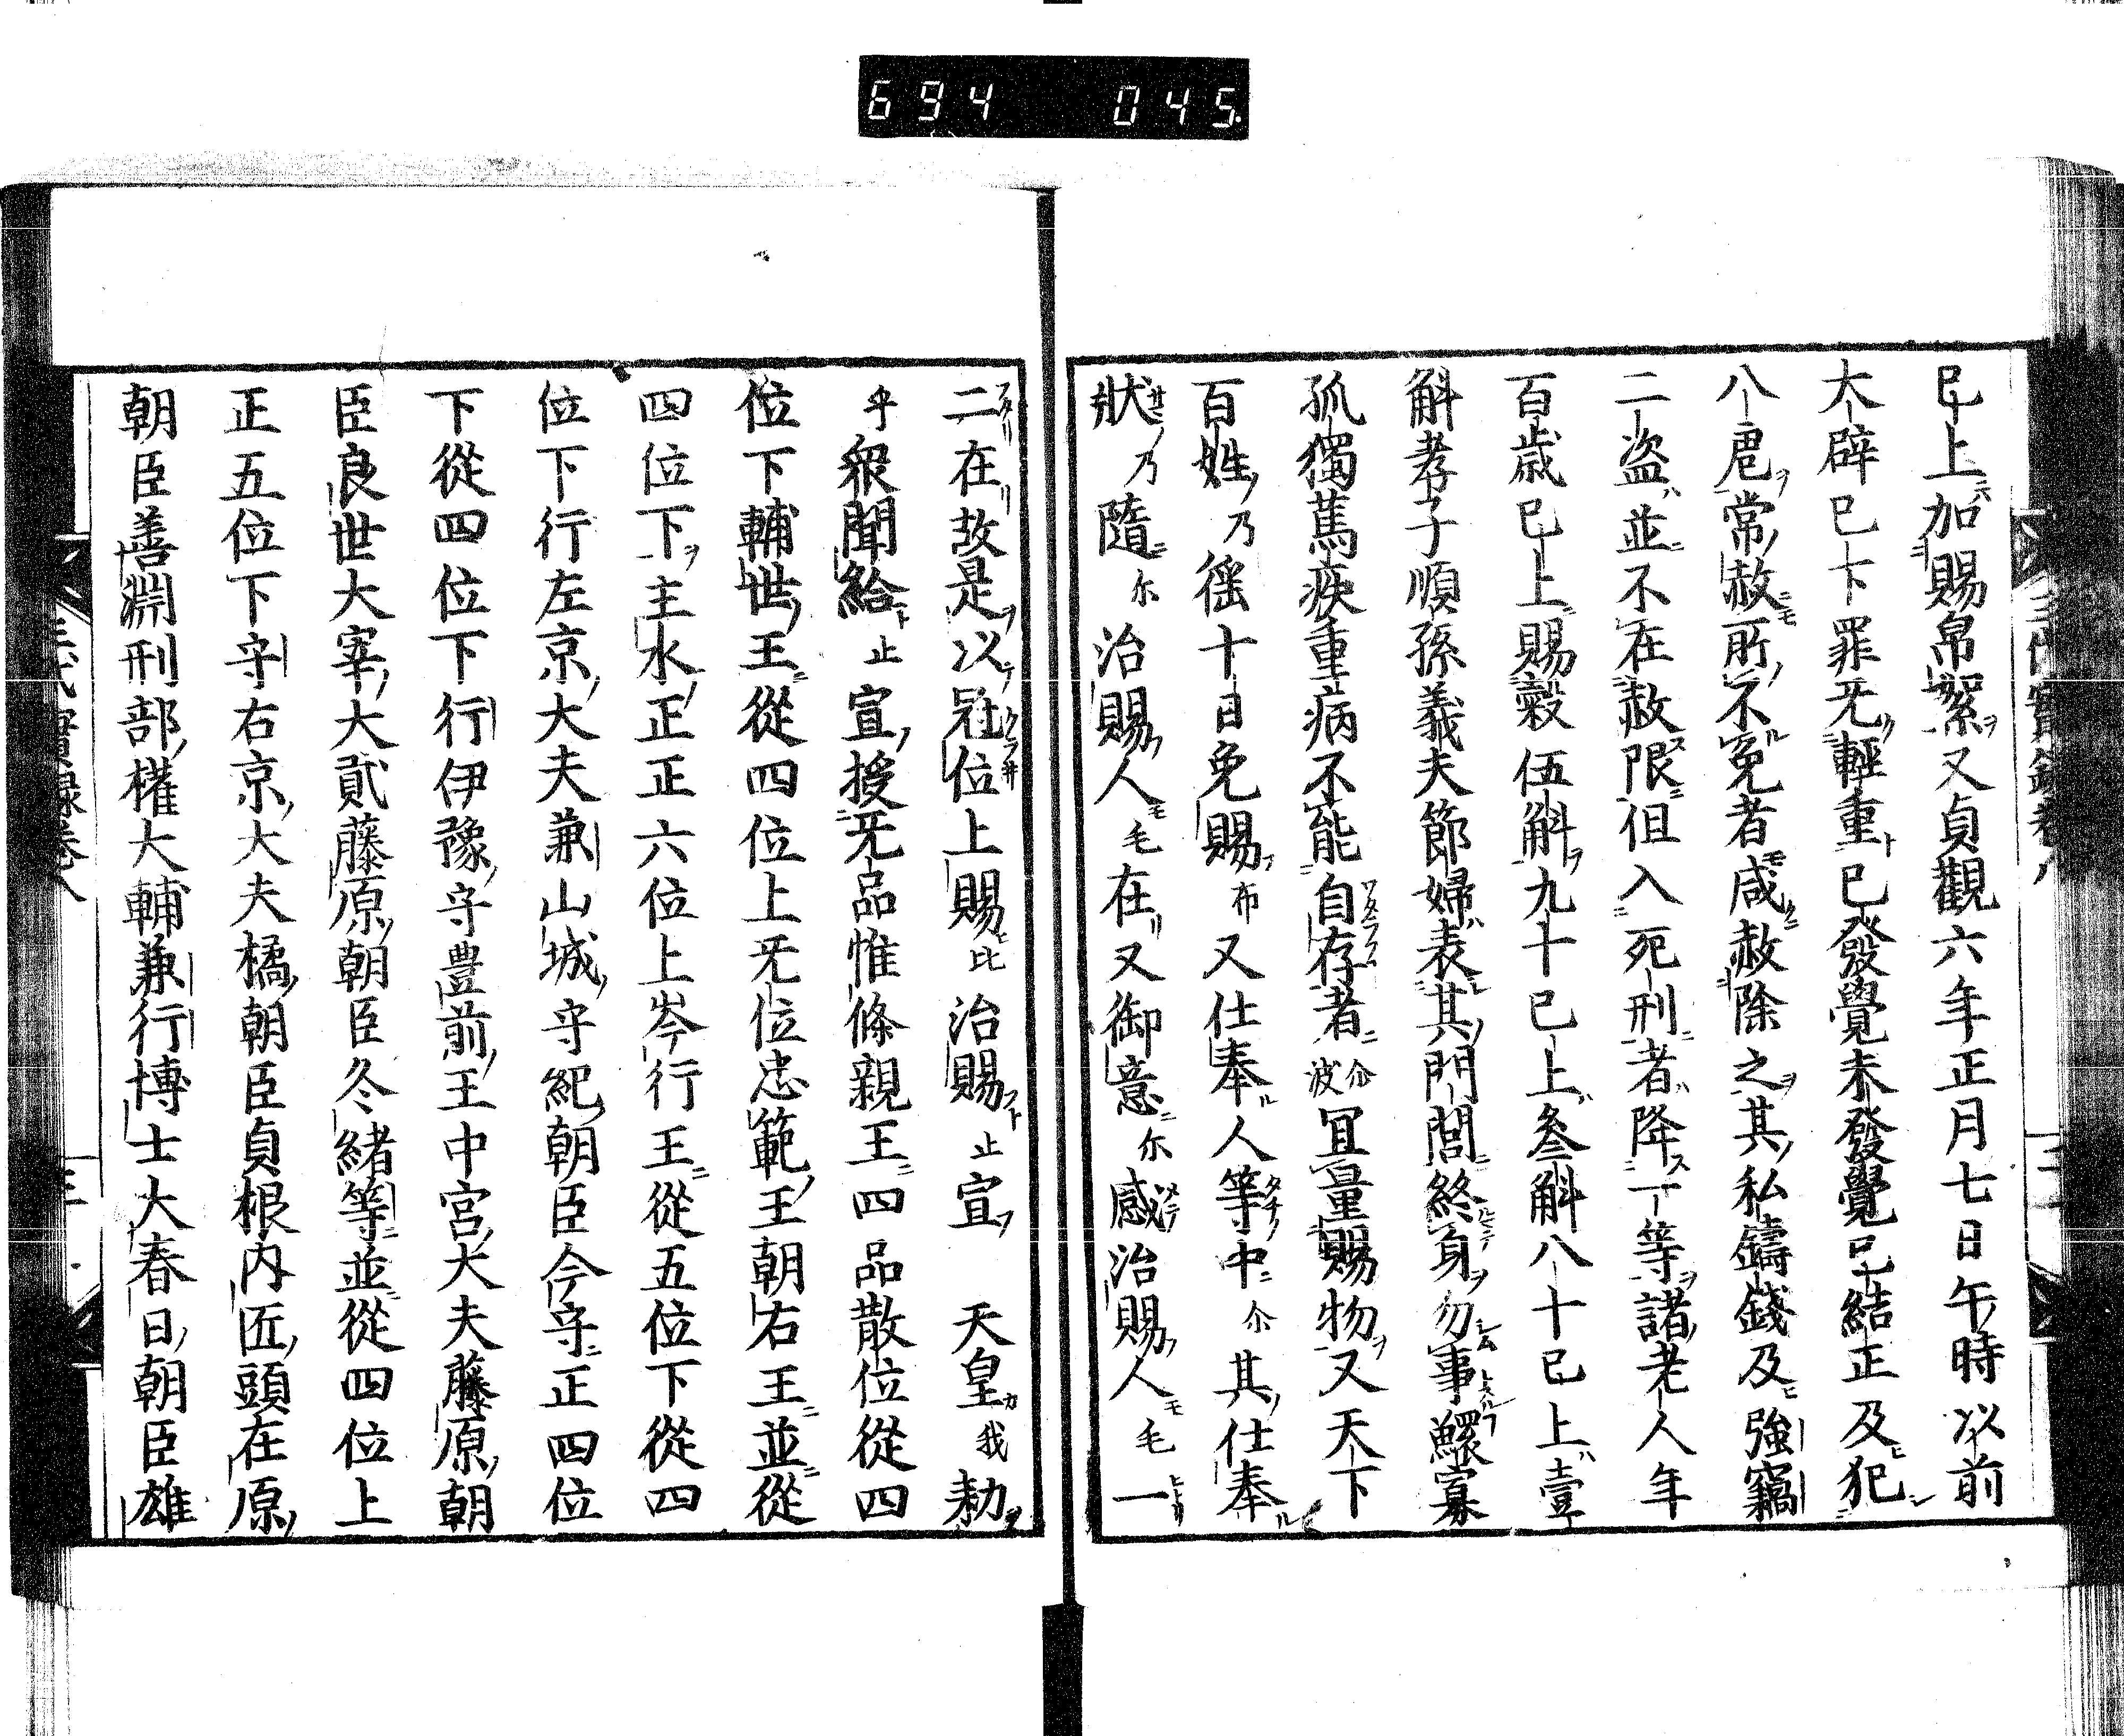 694 045
巳上加賜帛絮又貞觀六年正月七日午時以前
大辟巳下罪无輕重巳發覺未發覺已結正及犯
八虐常赦所不免者咸赦除之其私鑄錢及強竊
二盗並不在赦限但入死刑者降一等諸老人年
百歳巳上賜穀伍斛九十已上叄斛八十已上壹
斛孝子順孫義夫節婦表其門閭終身勿事鰥寡
孤獨篤疾重病不能自存者尒波冝量賜物又天下
百姓乃徭十日免賜布又仕奉人等中尒其仕奉
狀乃隨尓治賜人毛在又御意尓感治賜人毛一
二在故是以冠位上賜比治賜止宣　天皇我勅
乎衆聞給止宣授无品惟條親王四品散位從四
位下輔世王從四位上无位忠範王朝右王並從
四位下主水正正六位上岑行王從五位下從四
位下行左京大夫兼山城守紀朝臣今守正四位
下從四位下行伊豫守豊前王中宮大夫藤原朝
臣良世大宰大貳藤原朝臣冬緒等並從四位上
正五位下守右京大夫橘朝臣貞根内匠頭在原
朝臣善淵刑部權大輔兼行博士大春日朝臣雄